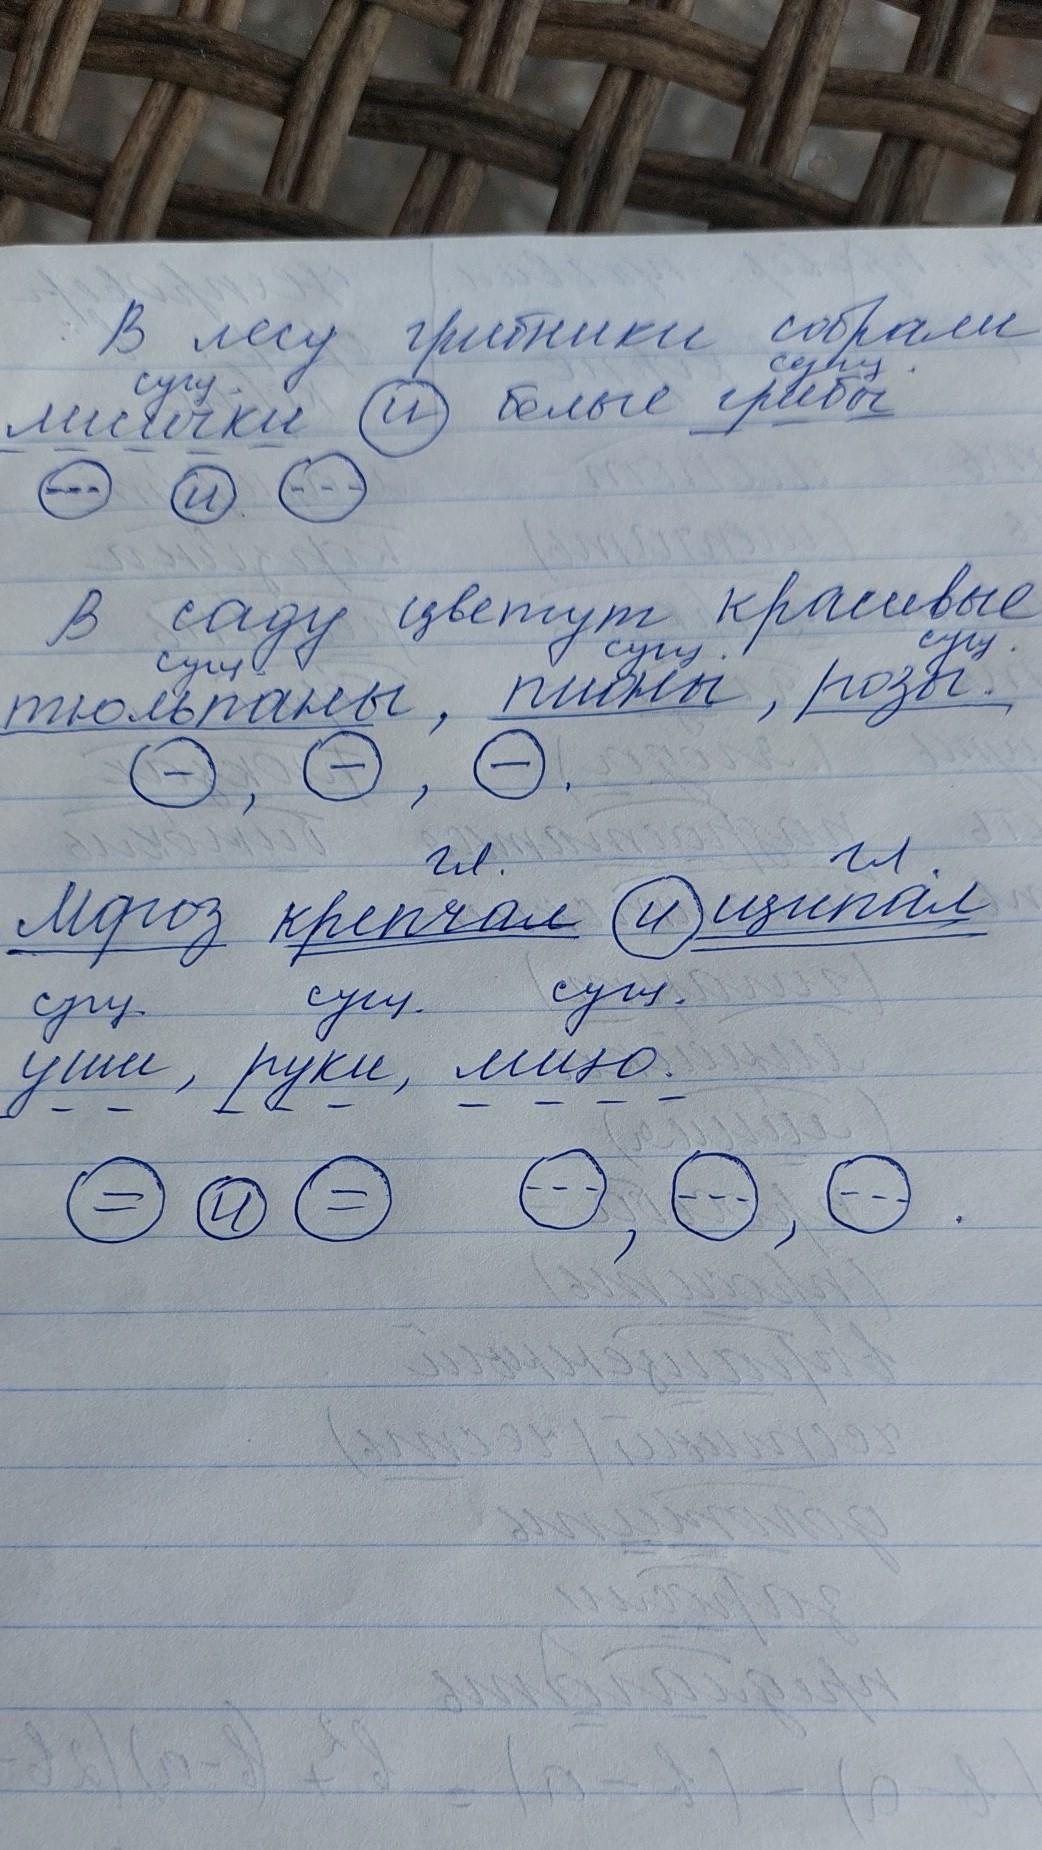 В лесу грибники собрали
сущ. сущ.
лисички и белые грибы
и
В саду цветут красивые
сущ. сущ. сущ.
тюльпаны, пионы, розы.
, , .
гл. гл.
Мороз крепчал и щипал
сущ. сущ. сущ.
уши, руки, лицо.
= и = , , .